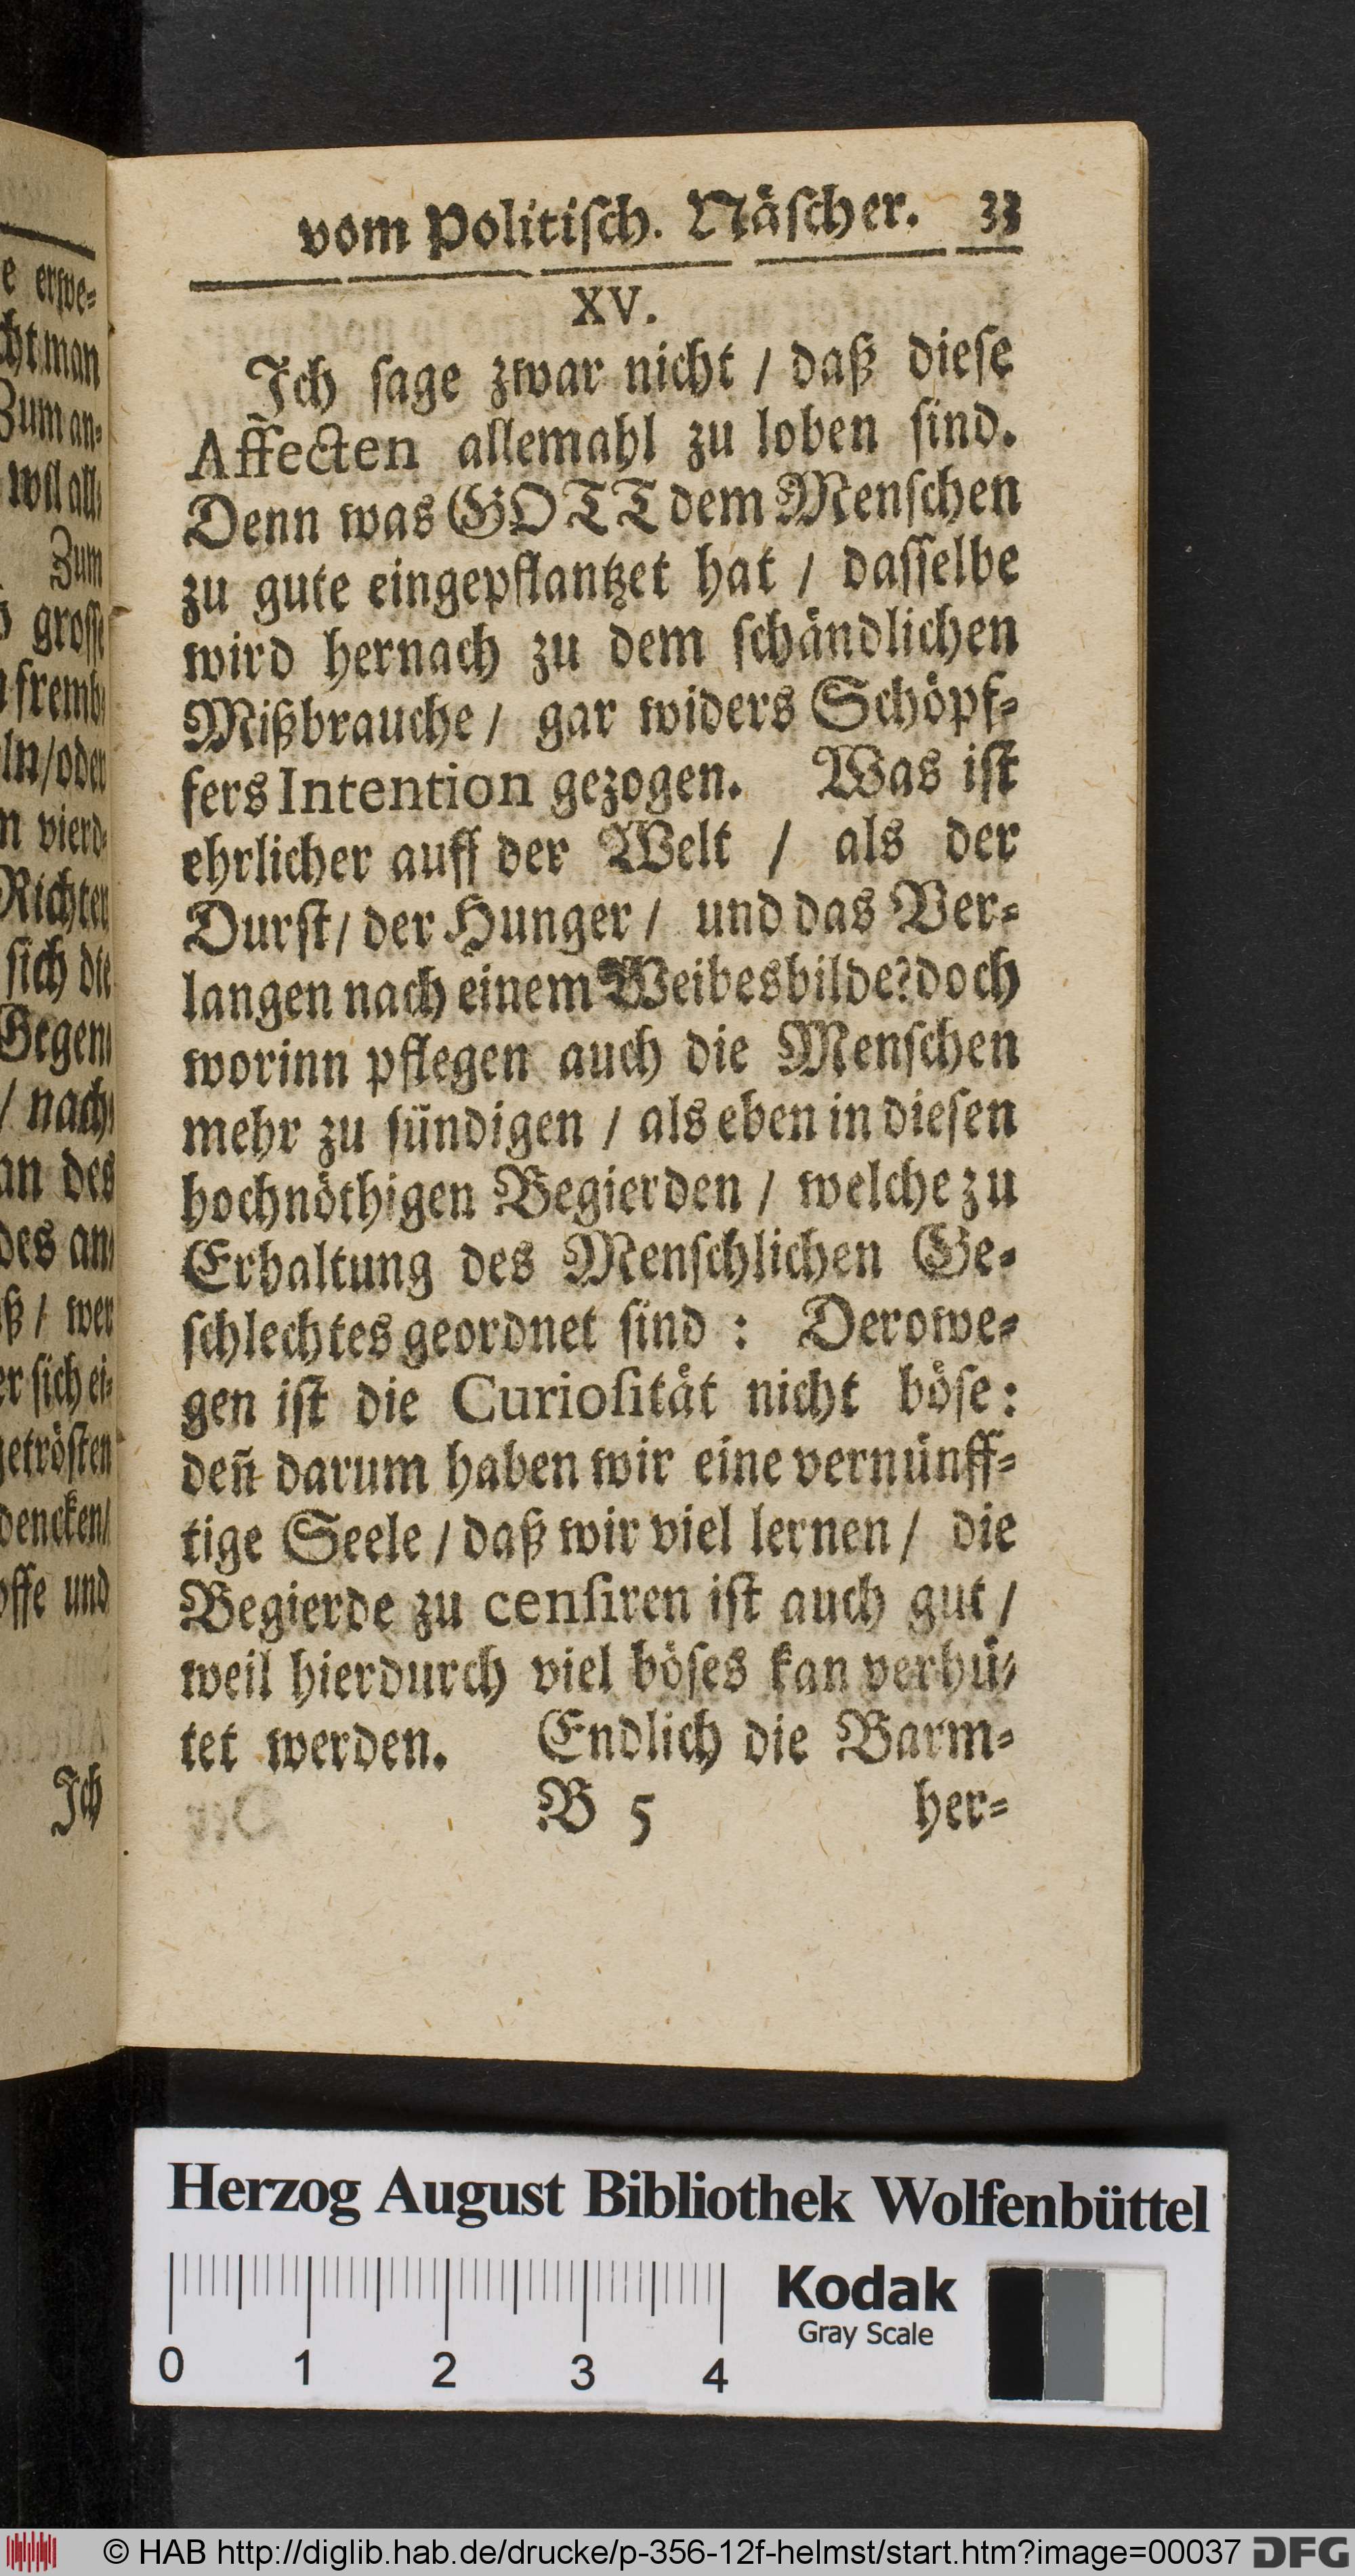 e erwe⸗
cht man
Zum an⸗
wil all⸗
Zum
grosse
fremb⸗
ln/oder
n vierd⸗
Richter
sich die
Gegen⸗
/ nach⸗
an des
des an⸗
ß / wer
er sich ei⸗
getrösten
dencken/
offe und
Ich
vom Politiſch. Näſcher. 33
XV.
Ich ſage zwar nicht / daß dieſe
Affecten allemahl zu loben ſind.
Denn was GOTT dem Menſchen
zu gute eingepflantzet hat / daſſelbe
wird hernach zu dem ſchändlichen
Mißbrauche / gar widers Schöpf⸗
fers Intention gezogen. Was iſt
ehrlicher auff der Welt / als der
Durſt / der Hunger / und das Ver⸗
langen nach einem Weibesbilde? doch
worinn pflegen auch die Menſchen
mehr zu ſündigen / als eben in dieſen
hochnöthigen Begierden / welche zu
Erhaltung des Menſchlichen Ge⸗
ſchlechtes geordnet ſind : Derowe⸗
gen iſt die Curioſität nicht böſe :
deñ darum haben wir eine vernünff⸗
tige Seele / daß wir viel lernen / die
Begierde zu cenſiren iſt auch gut /
weil hierdurch viel böſes kan verhü⸗
tet werden. Endlich die Barm⸗
B 5 her⸗
Herzog August Bibliothek Wolfenbüttel
Kodak
Gray Scale
0 1 2 3 4
© HAB http://diglib.hab.de/drucke/p-356-12f-helmst/start.htm?image=00037 DFG